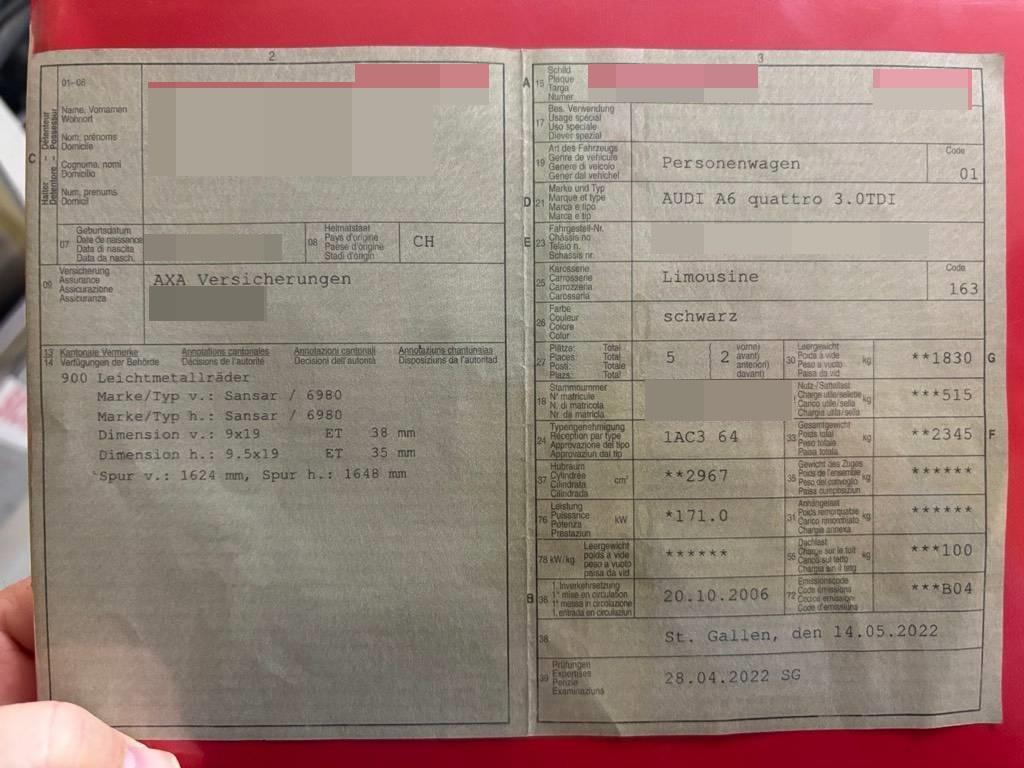 2
01–06
Détenteur
Possessur
Halter
Detentore
C
Name, Vornamen
Wohnort
Nom, prénoms
Domicile
Cognome, nomi
Domicilio
Num, prenums
Domicil
07
Geburtsdatum
Date de naissance
Data di nascita
Data da nasch.
08
Heimatstaat
Pays d'origine
Paese d'origine
Stadi d'origin
CH
09
Versicherung
Assurance
Assicurazione
Assicuranza
AXA Versicherungen
13 Kantonale Vermerke Annotations cantonales Annotazioni cantonali Annotaziuns chantunalas
14 Verfügungen der Behörde Décisions de l'autorité Decisioni dell'autorità Disposiziuns da l'autoritad
900 Leichtmetallräder
Marke/Typ v.: Sansar / 6980
Marke/Typ h.: Sansar / 6980
Dimension v.: 9x19 ET 38 mm
Dimension h.: 9.5x19 ET 35 mm
Spur v.: 1624 mm, Spur h.: 1648 mm
3
A
15
Schild
Plaque
Targa
Numer
17
Bes. Verwendung
Usage spécial
Uso speciale
Diever spezial
19
Art des Fahrzeugs
Genre de véhicule
Genere di veicolo
Gener dal vehichel
Personenwagen
Code
01
D
21
Marke und Typ
Marque et type
Marca e tipo
Marca e tip
AUDI A6 quattro 3.0TDI
E
23
Fahrgestell-Nr.
Châssis no
Telaio n.
Schassis nr.
25
Karosserie
Carrosserie
Carrozzeria
Carossaria
Limousine
Code
163
26
Farbe
Couleur
Colore
Color
schwarz
27
Plätze: Total
Places: Total
Posti: Totale
Plazs: Total
5
2
vorne)
avant)
anteriori)
davant)
30
Leergewicht
Poids à vide
Peso a vuoto
Paisa da vid
kg
**1830
G
18
Stammnummer
N° matricule
N. di matricola
Nr. da matricla
Nutz-/Sattellast
Charge utile/sellette
Carico utile/sella
Chargia utila/sella
kg
***515
24
Typengenehmigung
Réception par type
Approvazione del tipo
Approvaziun dal tip
1AC3 64
33
Gesamtgewicht
Poids total
Peso totale
Paisa totala
kg
**2345
F
37
Hubraum
Cylindrée
Cilindrata
Cilindrada
cm³
**2967
35
Gewicht des Zuges
Poids de l'ensemble
Peso del convoglio
Paisa cumposiziun
kg
******
76
Leistung
Puissance
Potenza
Prestaziun
kW
*171.0
31
Anhängelast
Poids remorquable
Carico rimorchiato
Chargia annexa
kg
******
78 kW/kg
Leergewicht
poids à vide
peso a vuoto
paisa da vid
******
55
Dachlast
Charge sur le toit
Carico sul tetto
Chargia sin il tetg
kg
***100
B
36
1. Inverkehrsetzung
1re mise en circulation
1a messa in circolazione
1. entrada en circulaziun
20.10.2006
72
Emissionscode
Code émissions
Codice emissioni
Code d'emissiuns
***B04
38
St. Gallen, den 14.05.2022
39
Prüfungen
Expertises
Perizie
Examinaziuns
28.04.2022 SG